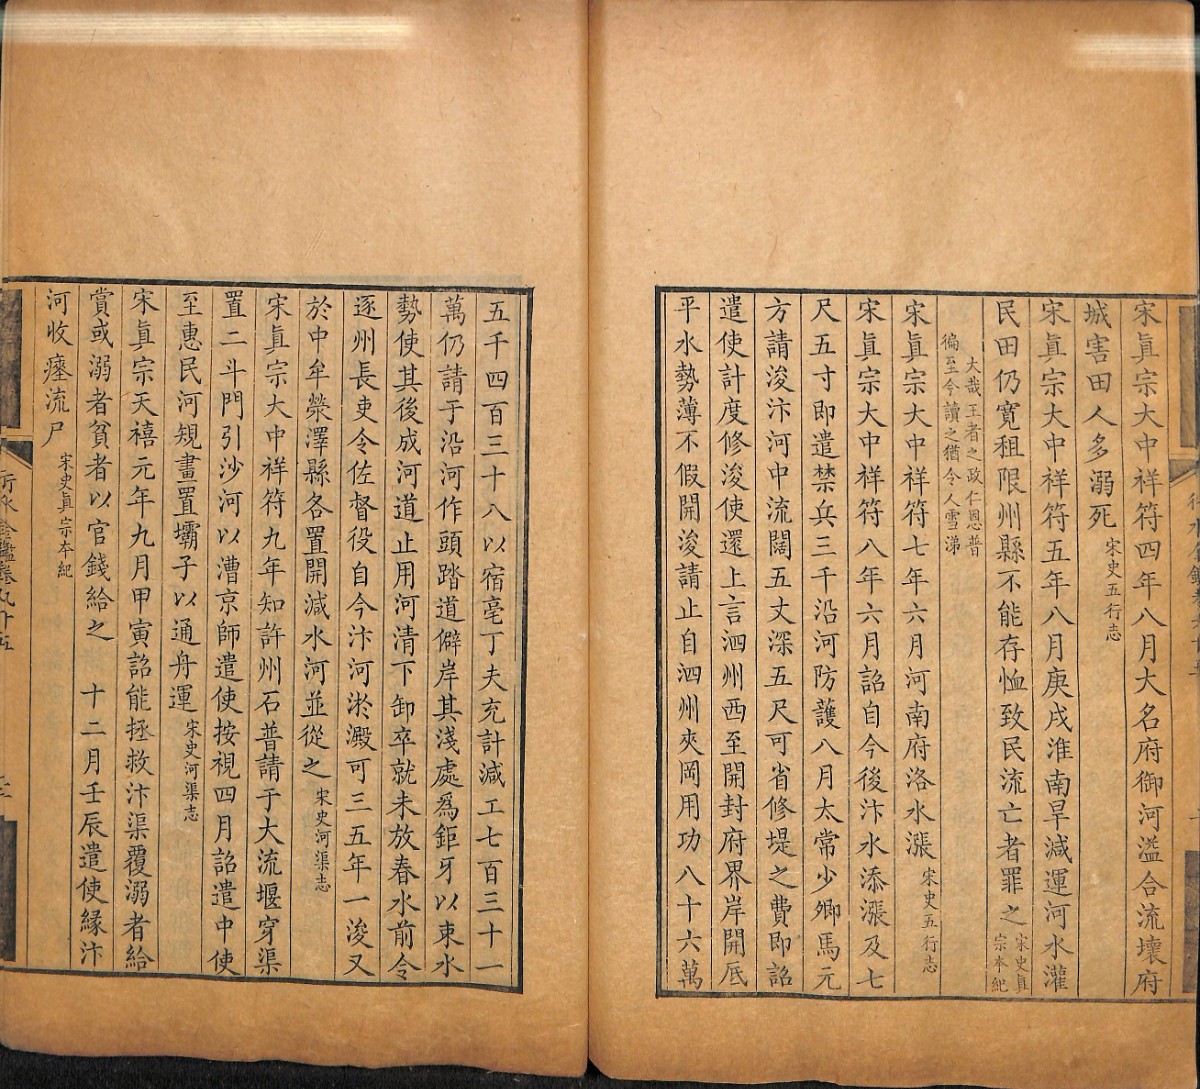 宋眞宗大中祥符四年八月大名府御河溢合流壞府
城害田人多溺死宋史五行志
宋眞宗大中祥符五年八月庚戌淮南旱減運河水灌
民田仍寬租限州縣不能存恤致民流亡者罪之宋史眞宗本紀
大哉王者之政仁恩普
徧至今讀之猶令人雪涕
宋眞宗大中祥符七年六月河南府洛水漲宋史五行志
宋眞宗大中祥符八年六月詔自今後汴水添漲及七
尺五寸即遣禁兵三千沿河防護八月太常少卿馬元
方請浚汴河中流闊五丈深五尺可省修堤之費即詔
遣使計度修浚使還上言泗州西至開封府界岸開底
平水勢薄不假開浚請止自泗州夾岡用功八十六萬
五千四百三十八以宿亳丁夫充計減工七百三十一
萬仍請于沿河作頭踏道僻岸其淺處為鉅牙以束水
勢使其後成河道止用河清下卸卒就未放春水前令
逐州長吏令佐督役自今汴河淤澱可三五年一浚又
於中牟滎澤縣各置開減水河並從之宋史河渠志
宋眞宗大中祥符九年知許州石普請于大流堰穿渠
置二斗門引沙河以漕京師遣使按視四月詔遣中使
至惠民河規畫置壩子以通舟運宋史河渠志
宋眞宗天禧元年九月甲寅詔能拯救汴渠覆溺者給
賞或溺者貧者以官錢給之 十二月壬辰遣使緣汴
河收瘞流尸宋史眞宗本紀
行水金鑑卷九十五